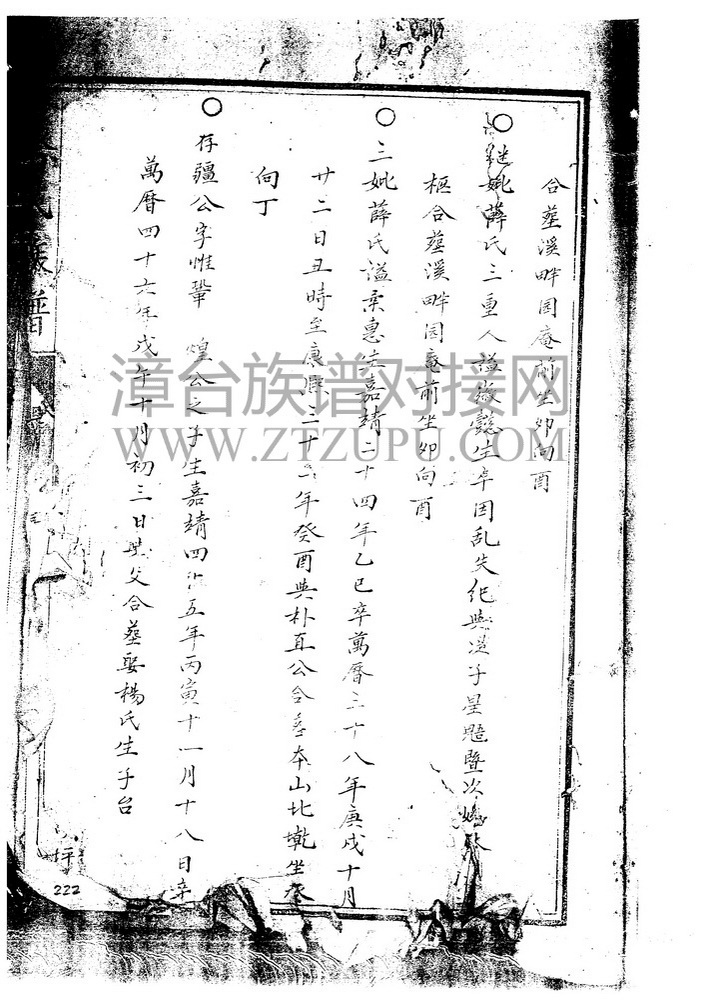 合塟溪畔园庵前坐卯向酉
継妣薛氏三重人謚淑懿生卒因乱失纪與道子星魁暨次媳林
柩合塟溪畔园庵前坐卯向酉
三妣薛氏谥柔惠生嘉靖二十四年乙巳卒萬曆三十八年庚戌十月
廿二日丑時至康熙三十二年癸酉與朴直公合塟本山比墘坐癸
向丁
存疆公字惟鞏 煌公之子生嘉靖四十五年丙寅十一月十八日卒
萬曆四十六年戊午十月初三日與父合塟娶楊氏生子台
族譜
坪
222
漳台族谱对接网
WWW.ZTZUPU.COM